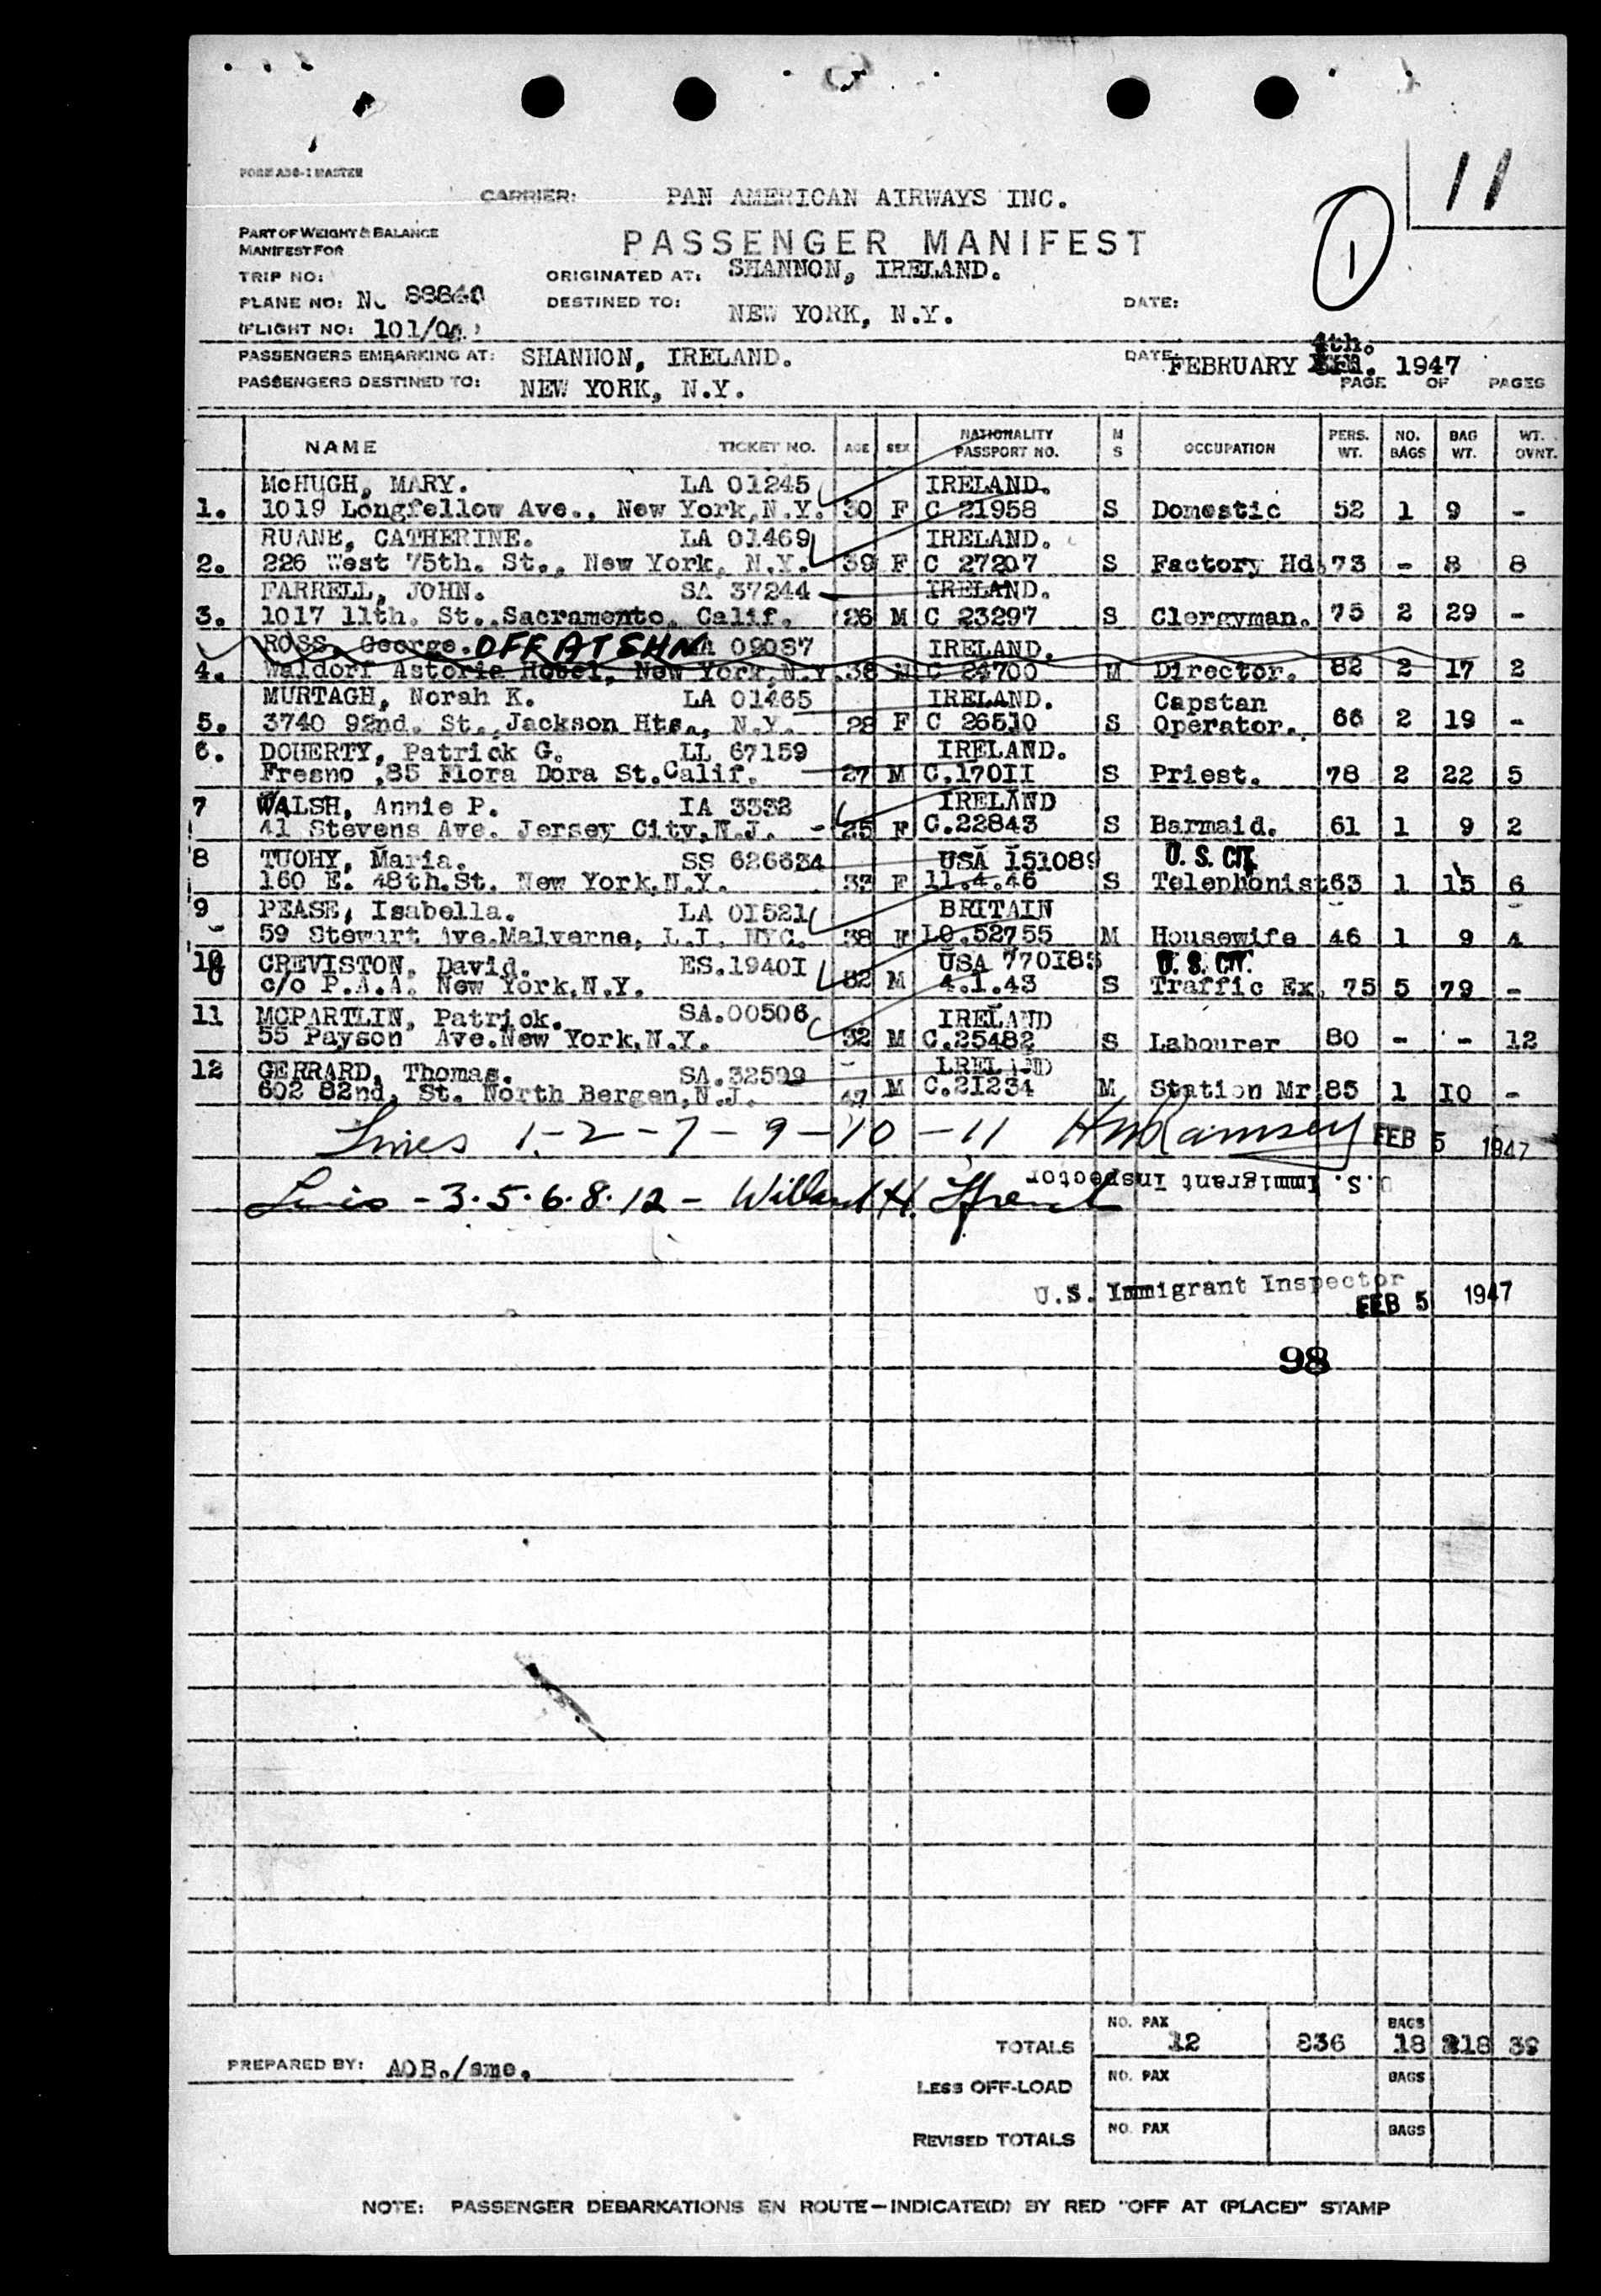 11
FORM A30-1 MASTER
CARRIER: PAN AMERICAN AIRWAYS INC.
1
PART OF WEIGHT & BALANCE
MANIFEST FOR
PASSENGER MANIFEST
TRIP NO: ORIGINATED AT: SHANNON, IRELAND.
PLANE NO: DESTINED TO: NEW YORK, N.Y. DATE:
(FLIGHT NO: 101/
PASSENGERS EMBARKING AT: SHANNON, IRELAND. DATE: FEBRUARY 4th. 1947
PASSENGERS DESTINED TO: NEW YORK, N.Y. PAGE OF PAGES
NAME TICKET NO. AGE SEX NATIONALITY PASSPORT NO. M S OCCUPATION PERS. WT. NO. BAGS BAG WT. WT. OVNT.
McHUGH, MARY. LA 01245 IRELAND.
1. 1019 Longfellow Ave., New York,N.Y. 30 F C 21958 S Domestic 52 1 9 -
RUANE, CATHERINE. LA 01469 IRELAND.
2. 226 West 75th. St., New York, N.Y. 39 F C 27207 S Factory Hd. 73 - 8 8
FARRELL, JOHN. SA 37244 IRELAND.
3. 1017 11th. St.,Sacramento, Calif. 26 M C 23297 S Clergyman. 75 2 29 -
ROSS, George. OFF AT SHN 09087 IRELAND.
4. Waldorf Astoria Hotel, New York,N.Y. 38 M C 24700 M Director. 82 2 17 2
MURTAGH, Norah K. LA 01465 IRELAND. Capstan
5. 3740 92nd. St., Jackson Hts., N.Y. 28 F C 26510 S Operator. 66 2 19 -
6. DOHERTY, Patrick G. LL 67159 IRELAND.
Fresno ,85 Flora Dora St.Calif. 27 M C.17011 S Priest. 78 2 22 5
7 WALSH, Annie P. IA 3332 IRELAND
41 Stevens Ave. Jersey City,N.J. - 25 F C.22843 S Barmaid. 61 1 9 2
8 TUOHY, Maria. SS 626634 USA 151089 U. S. CIT.
160 E. 48th.St. New York,N.Y. 33 F 11.4.46 S Telephonist 63 1 15 6
9 PEASE, Isabella. LA 01521 BRITAIN
59 Stewart Ave.Malverne, L.I. NYC. 38 F 10.52755 M Housewife 46 1 9 4
10 CREVISTON, David. ES.19401 USA 770185 U. S. CIT.
c/o P.A.A. New York,N.Y. 32 M 4.1.43 S Traffic Ex. 75 5 79 -
11 MCPARTLIN, Patrick. SA.00506 IRELAND
55 Payson Ave.New York,N.Y. 32 M C.25482 S Labourer 80 - - 12
12 GERRARD, Thomas. SA.32599 IRELAND
602 82nd. St. North Bergen,N.J. 47 M C.21234 M Station Mr. 85 1 10 -
Lines 1-2-7-9-10-11 HMRamsey FEB 5 1947
U.S. Immigrant Inspector
Lines -3.5.6.8.12- Willard H.
U.S. Immigrant Inspector
FEB 5 1947
98
TOTALS NO. PAX 12 836 BAGS 18 218 39
PREPARED BY: AOB./smc.
LESS OFF-LOAD NO. PAX BAGS
REVISED TOTALS NO. PAX BAGS
NOTE: PASSENGER DEBARKATIONS EN ROUTE—INDICATE(D) BY RED "OFF AT (PLACE)" STAMP